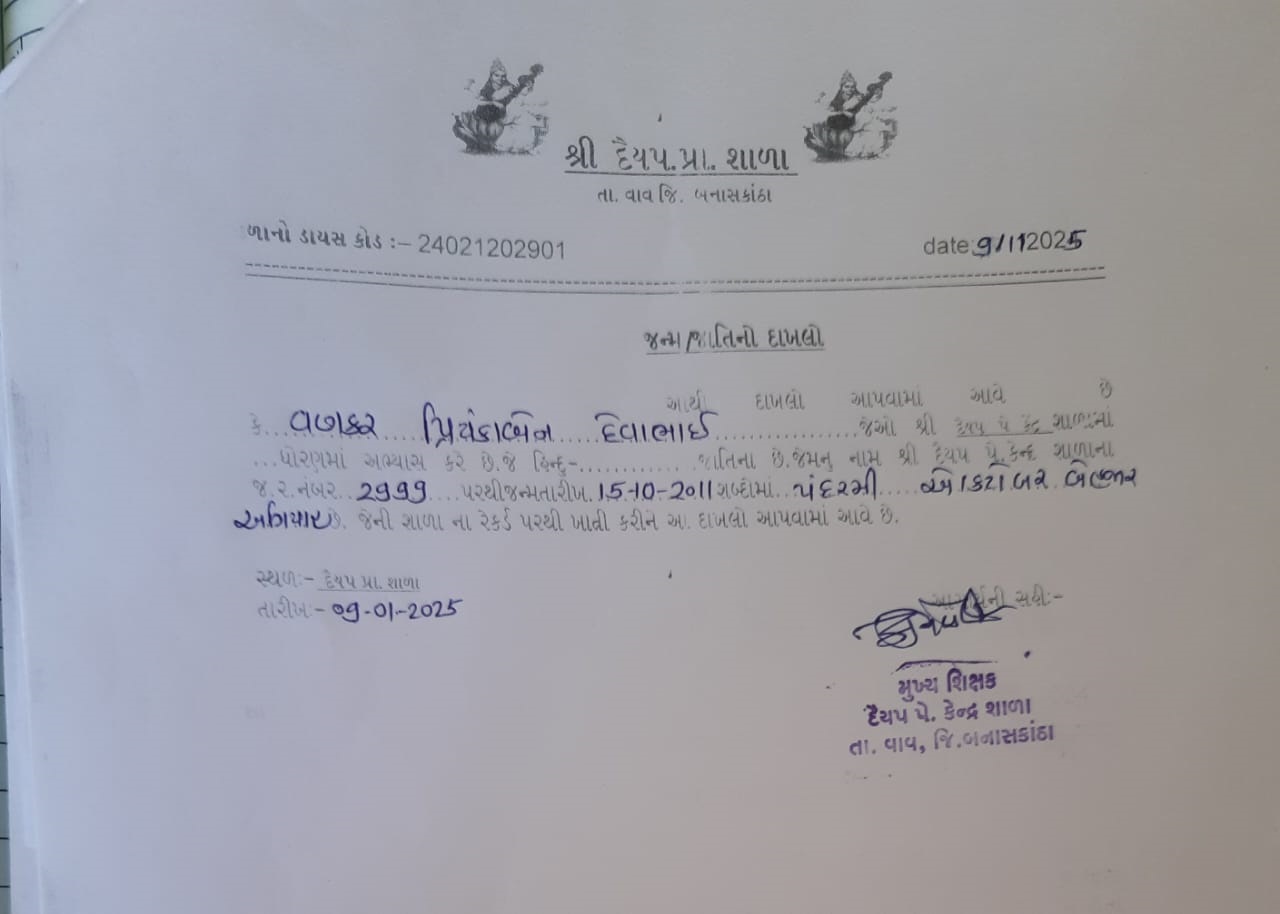 શ્રી દૈયપ.પ્રા. શાળા
તા. વાવ જિ. બનાસકાંઠા
ળાનો ડાયસ કોડ :– 24021202901 date:9/1/2025
જન્મ/જાતિનો દાખલો
આથી દાખલો આપવામાં આવે છે
કે....વણકર....પ્રિયંકાબેન....દેવાભાઈ................જેઓ શ્રી દૈયપ પે કેન્દ્ર શાળામાં
...ધોરણમાં અભ્યાસ કરે છે.જે હિન્દુ-............. જાતિના છે.જેમનુ નામ શ્રી દૈયપ પે.કેન્દ્ર શાળાના
જ.ર.નંબર..2999....પરથીજન્મતારીખ.15-10-2011શબ્દોમાં..પંદરમી.....ઓકટોબર બેહજાર
અગિયાર છે. જેની શાળા ના રેકર્ડ પરથી ખાત્રી કરીને આ દાખલો આપવામાં આવે છે.
સ્થળ:- દૈયપ પ્રા. શાળા
તારીખ:- 09-01-2025
આચાર્યની સહી:-
મુખ્ય શિક્ષક
દૈયપ પે. કેન્દ્ર શાળા
તા. વાવ, જિ.બનાસકાંઠા